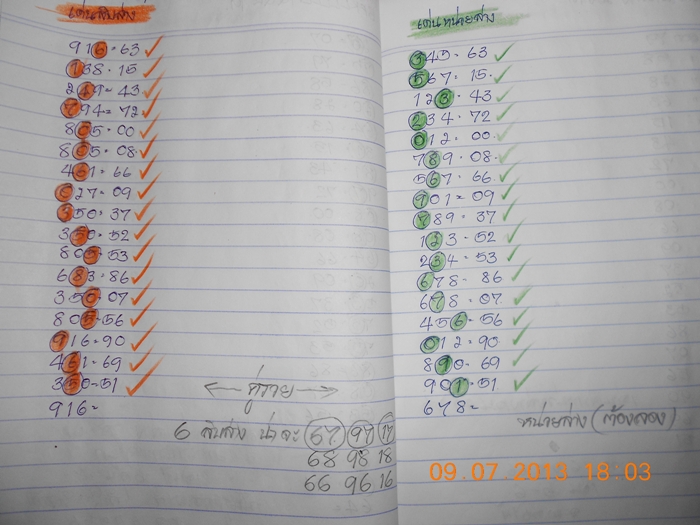 เด่นสิบล่าง
916-63
138-15
249-43
794-72
805-00
805-08
461-66
627-09
350-37
350-52
805-53
683-86
350-07
805-56
916-90
461-69
350-51
916=
คู่ราย
6 สิบล่าง น่าจะ 67 97 17
68 98 18
66 96 16
เด่นหน่วยล่าง
345-63
567-15
123-43
234-72
012-00
789-08
567-66
901=09
789-37
123-52
234-53
678-86
678-07
456-56
012-90
890-69
901-51
678=
หน่วยล่าง (ต้องลอง)
09.07.2013 18:03